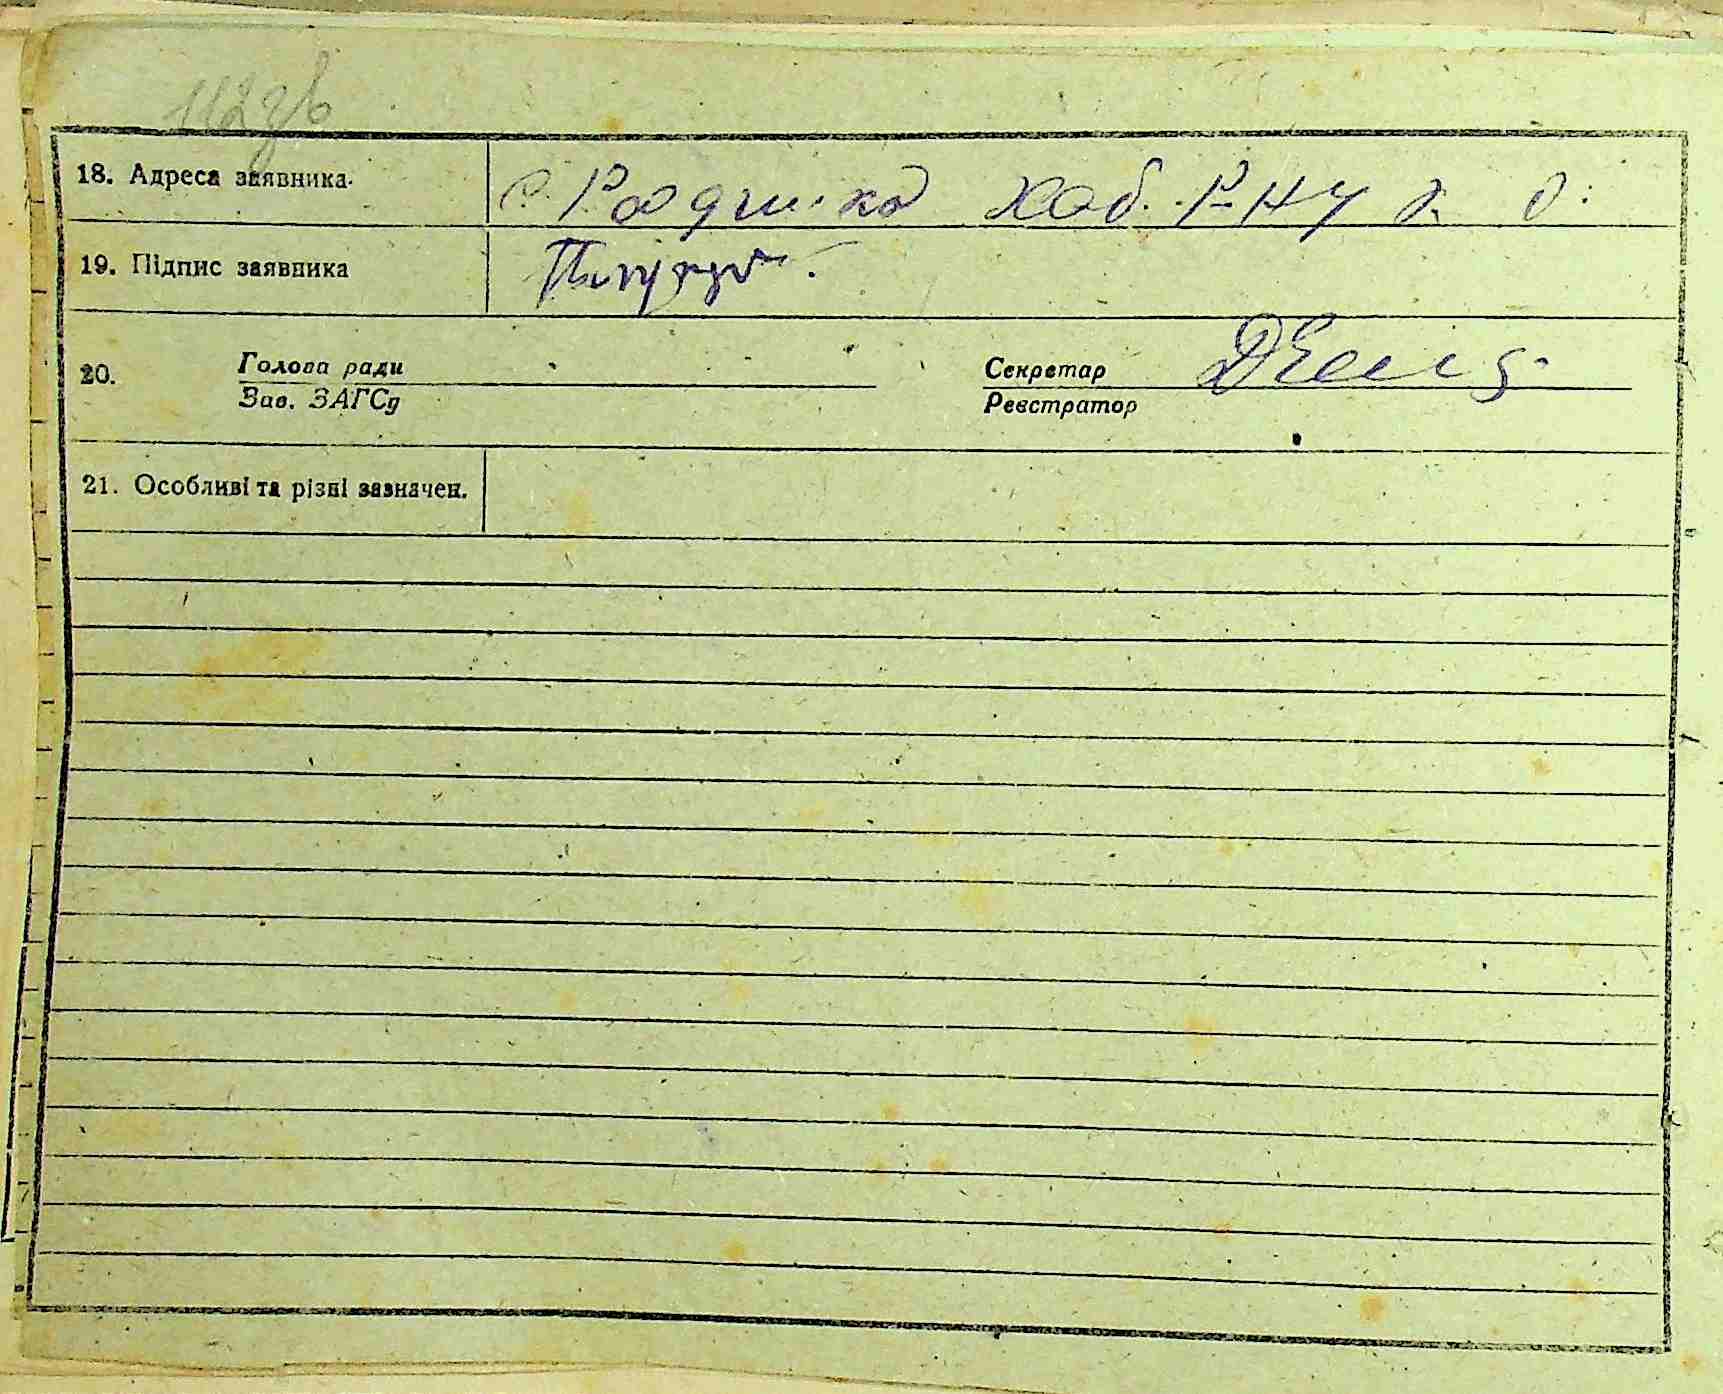 112зв
18. Адреса заявника.
с. Родники Коб. Р-НУ К. О.
19. Підпис заявника
20. Голова ради
Зав. ЗАГСу
Секретар
Реєстратор
21. Особливі та різні зазначен.